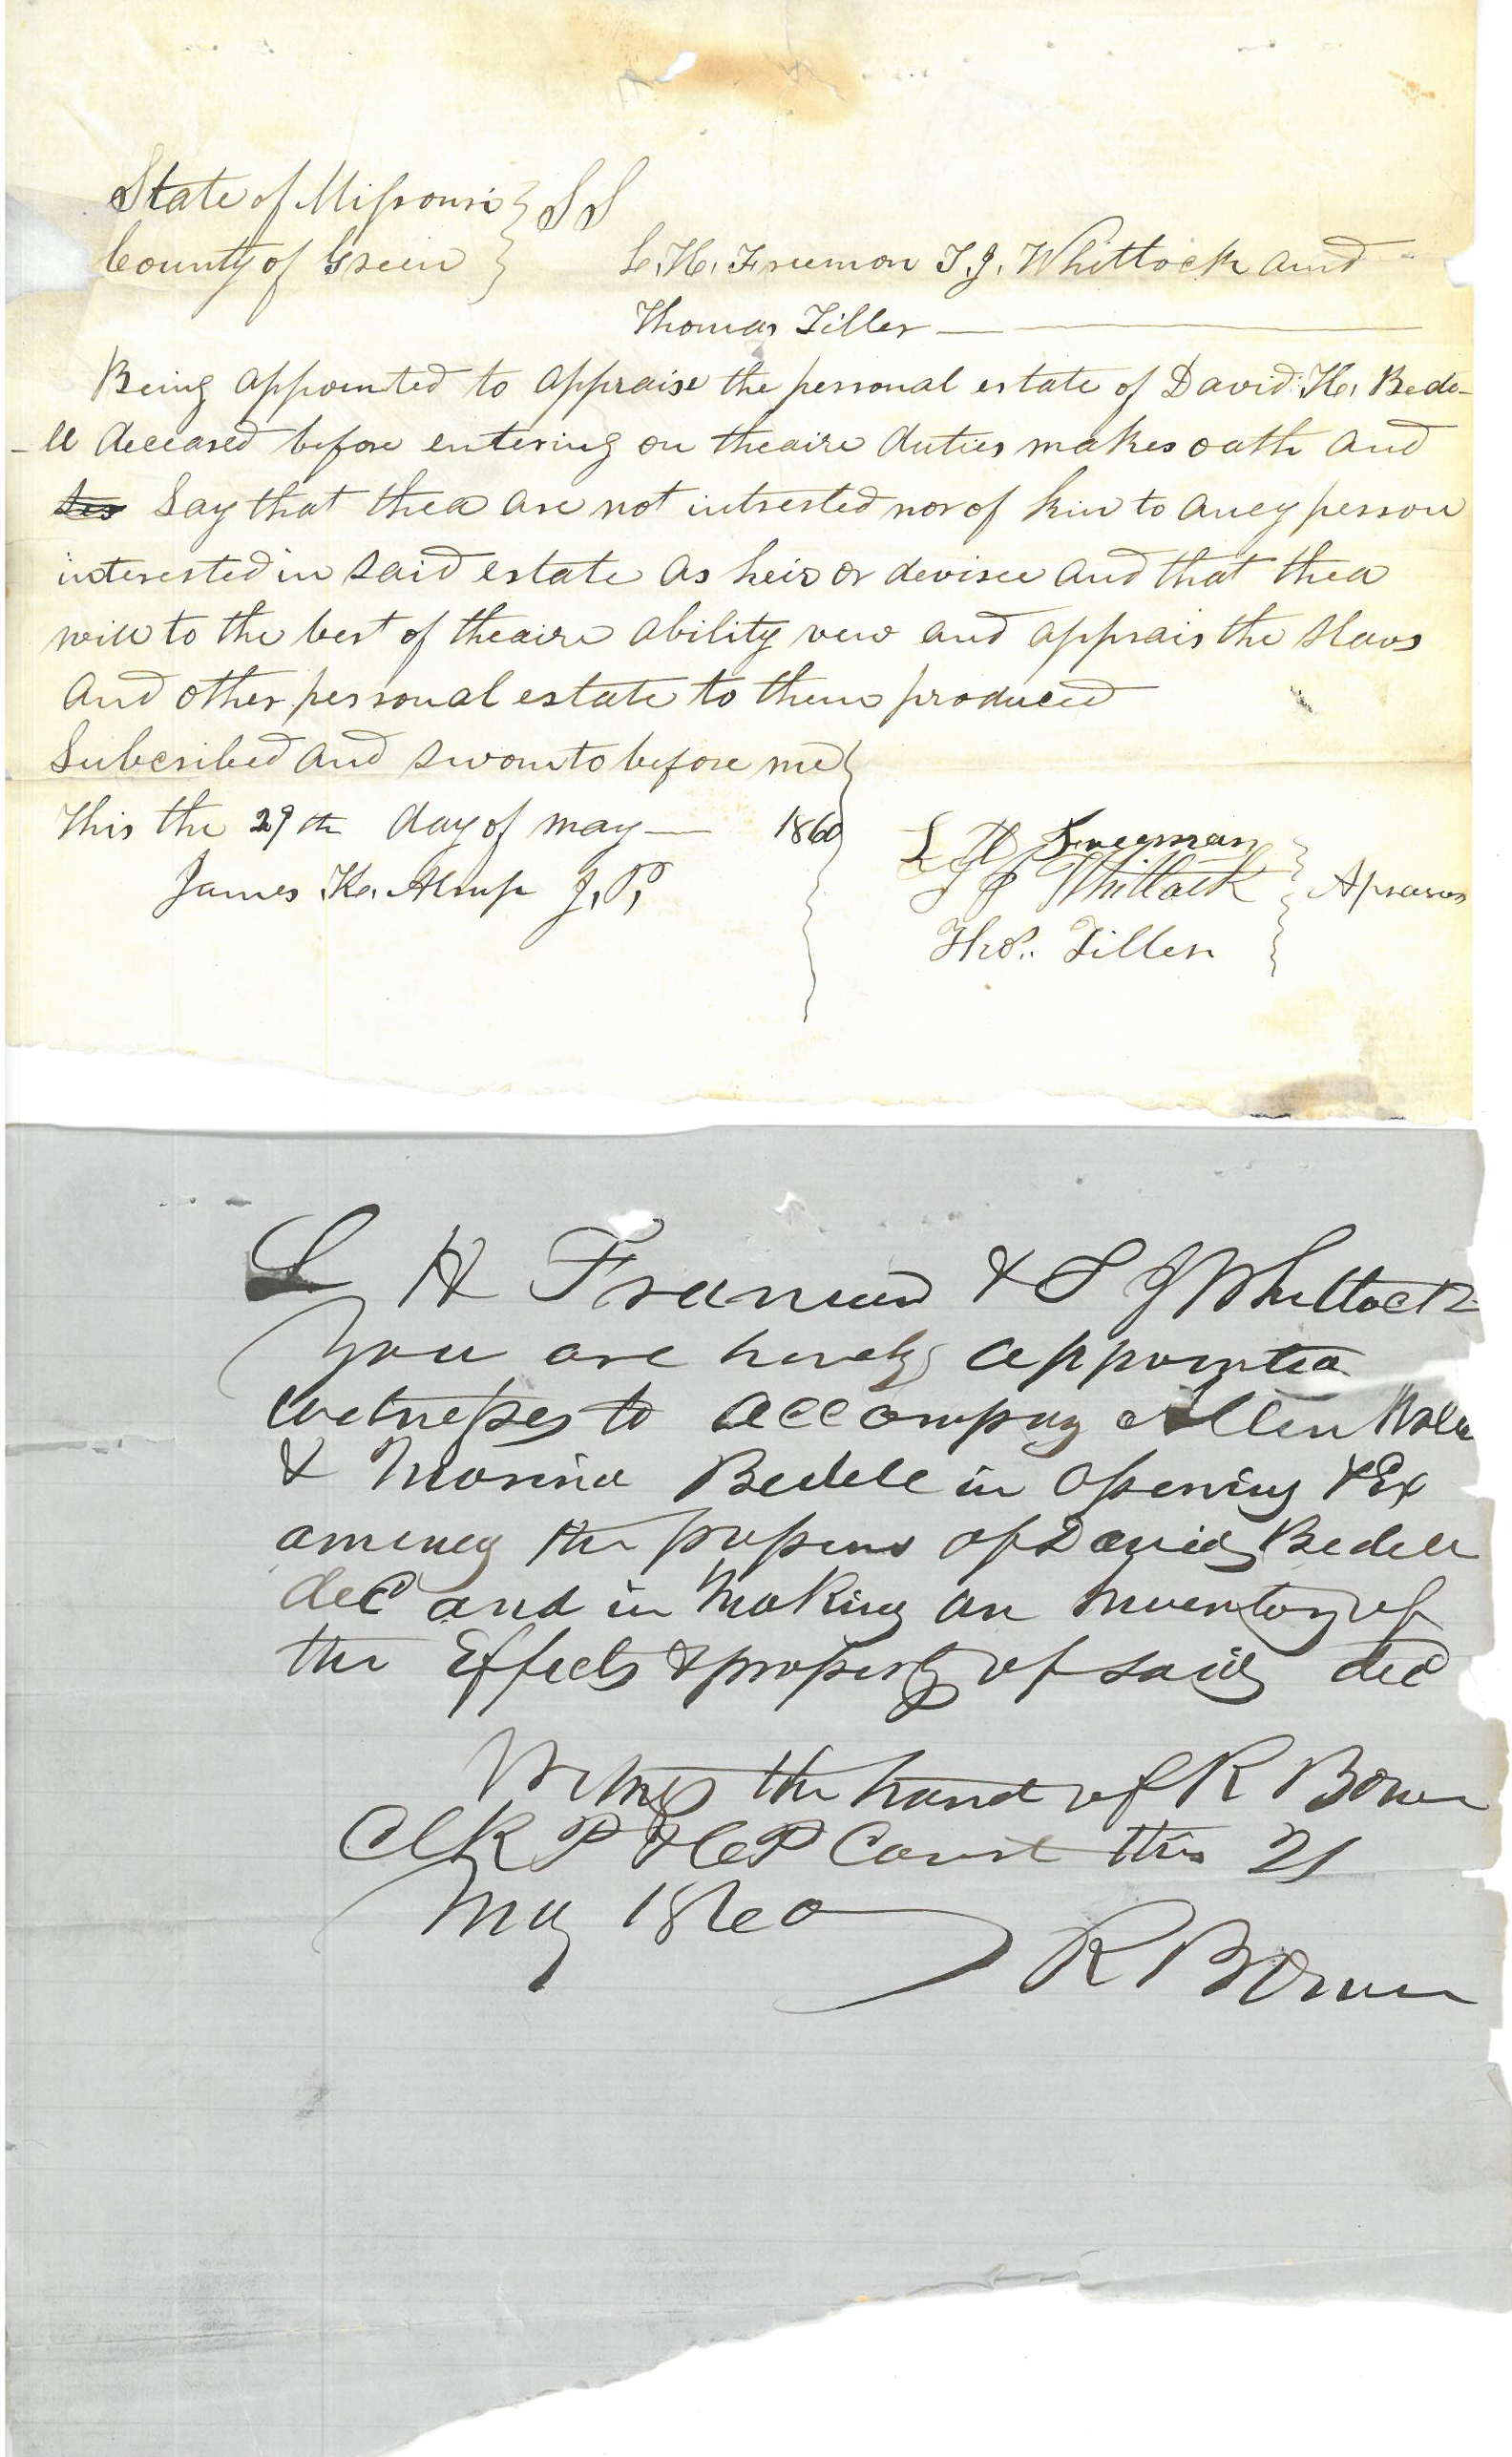 State of Missouri } SS
County of Green }
L. H. Freemon T. J. Whittock and
Thomas Tiller
Being appointed to appraise the personal estate of David H. Bede-
-ll deceased before entering on theaire duties makes oath and
Say that thea are not intrested nor of kin to aney person
interested in said estate as heir or devisee and that thea
will to the best of theaire ability vew and apprais the slavs
and other personal estate to them produced
Subcribed and sworn to before me }
This the 29th day of may 1860
James K. Alsup J. P.
L H Freeman
T J Whittock } Aprasors
Thos. Tiller
L H Freamon & T J Whittock
You are hereby appointed
witnesses to accompny Allen
& Marina Bedell in opening & Ex
amineg the papers of David Bedell
decd and in Making an Inventory of
the Effects & property of said decd
Witness the hand of R Bower
Clk P & CP Court this 21
May 1860
R Bower